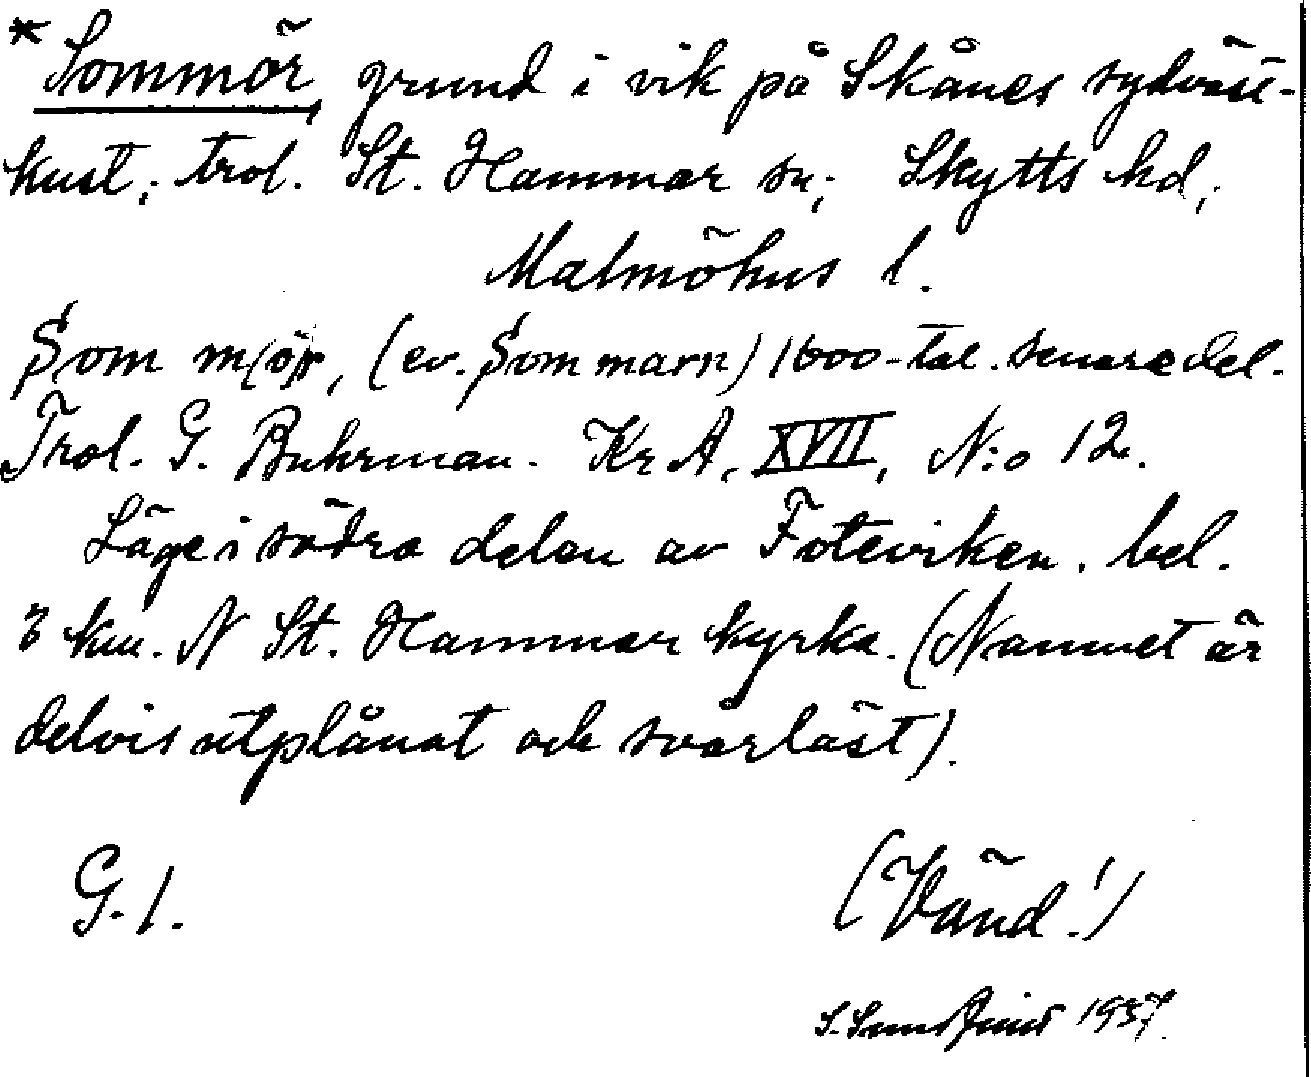 * Sommör, grund i vik på Skånes sydväst-
kust, trol. St. Hammar sn, Skytts hd,
Malmöhus l.
Som m(ö)r, (ev. Sommarn) 1600-tal. senare del.
Trol. G. Buhrman. Kr A, XVII, N:o 12.
Läge i södra delen av Foteviken. bel.
3 km. N St. Hammar kyrka. (Namnet är
delvis utplånat och svårläst).
G. 1.
(Vänd!)
1937